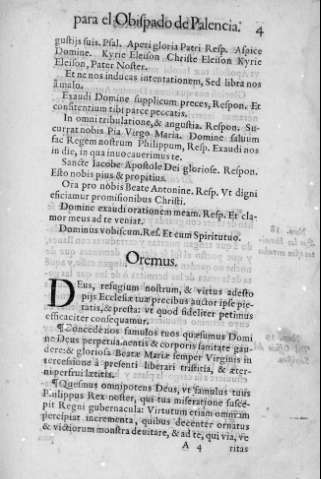 para el Obispado de Palencia. 4
gustijs suis. Psal. Aperi gloria Patri Resp. Aspice
Domine. Kyrie Eleison Christe Eleison Kyrie
Eleison, Pater Noster.
Et ne nos inducas intentationem, Sed libra nos
â malo.
Exaudi Domine supplicum preces, Respon. Et
confitentium tibi parce peccatis.
In omni tribulatione, & angustia. Respon. Su-
currat nobis Pia Virgo Maria. Domine saluum
fac Regem nostrum Philippum, Resp. Exaudi nos
in die, in qua inuocauerimus te.
Sancte Iacobe Apostole Dei gloriose. Respon.
Esto nobis pius & propitius.
Ora pro nobis Beate Antonine. Resp. Vt digni
efficiamur promisionibus Christi.
Domine exaudi orationem meam. Resp. Et cla-
mor meus ad te veniat.
Dominus vobiscum. Res. Et cum Spiritu tuo.
Oremus.
DEus, refugium nostrum, & virtus adesto
pijs Ecclesiæ tuæ precibus auctor ipse pie-
tatis, & præsta: vt quod fideliter petimus
efficaciter consequamur.
¶Concede nos famulos tuos quæsumus Domi
ne Deus perpetua mentis & corporis sanitate gau-
dere: & gloriosa Beatæ Mariæ semper Virginis in
tercessione à presenti liberari tristitia, & æter-
ni perfrui lætitia.
¶Quesmus omnipotens Deus, vt famulus tuus
Philippus Rex noster, qui tua miseratione susce-
pit Regni gubernacula: Virtutum etiam omnium
percipiat incrementa, quibus decenter ornatus
& victiorum monstra deuitare, & ad te, qui via, ve
A 4 ritas